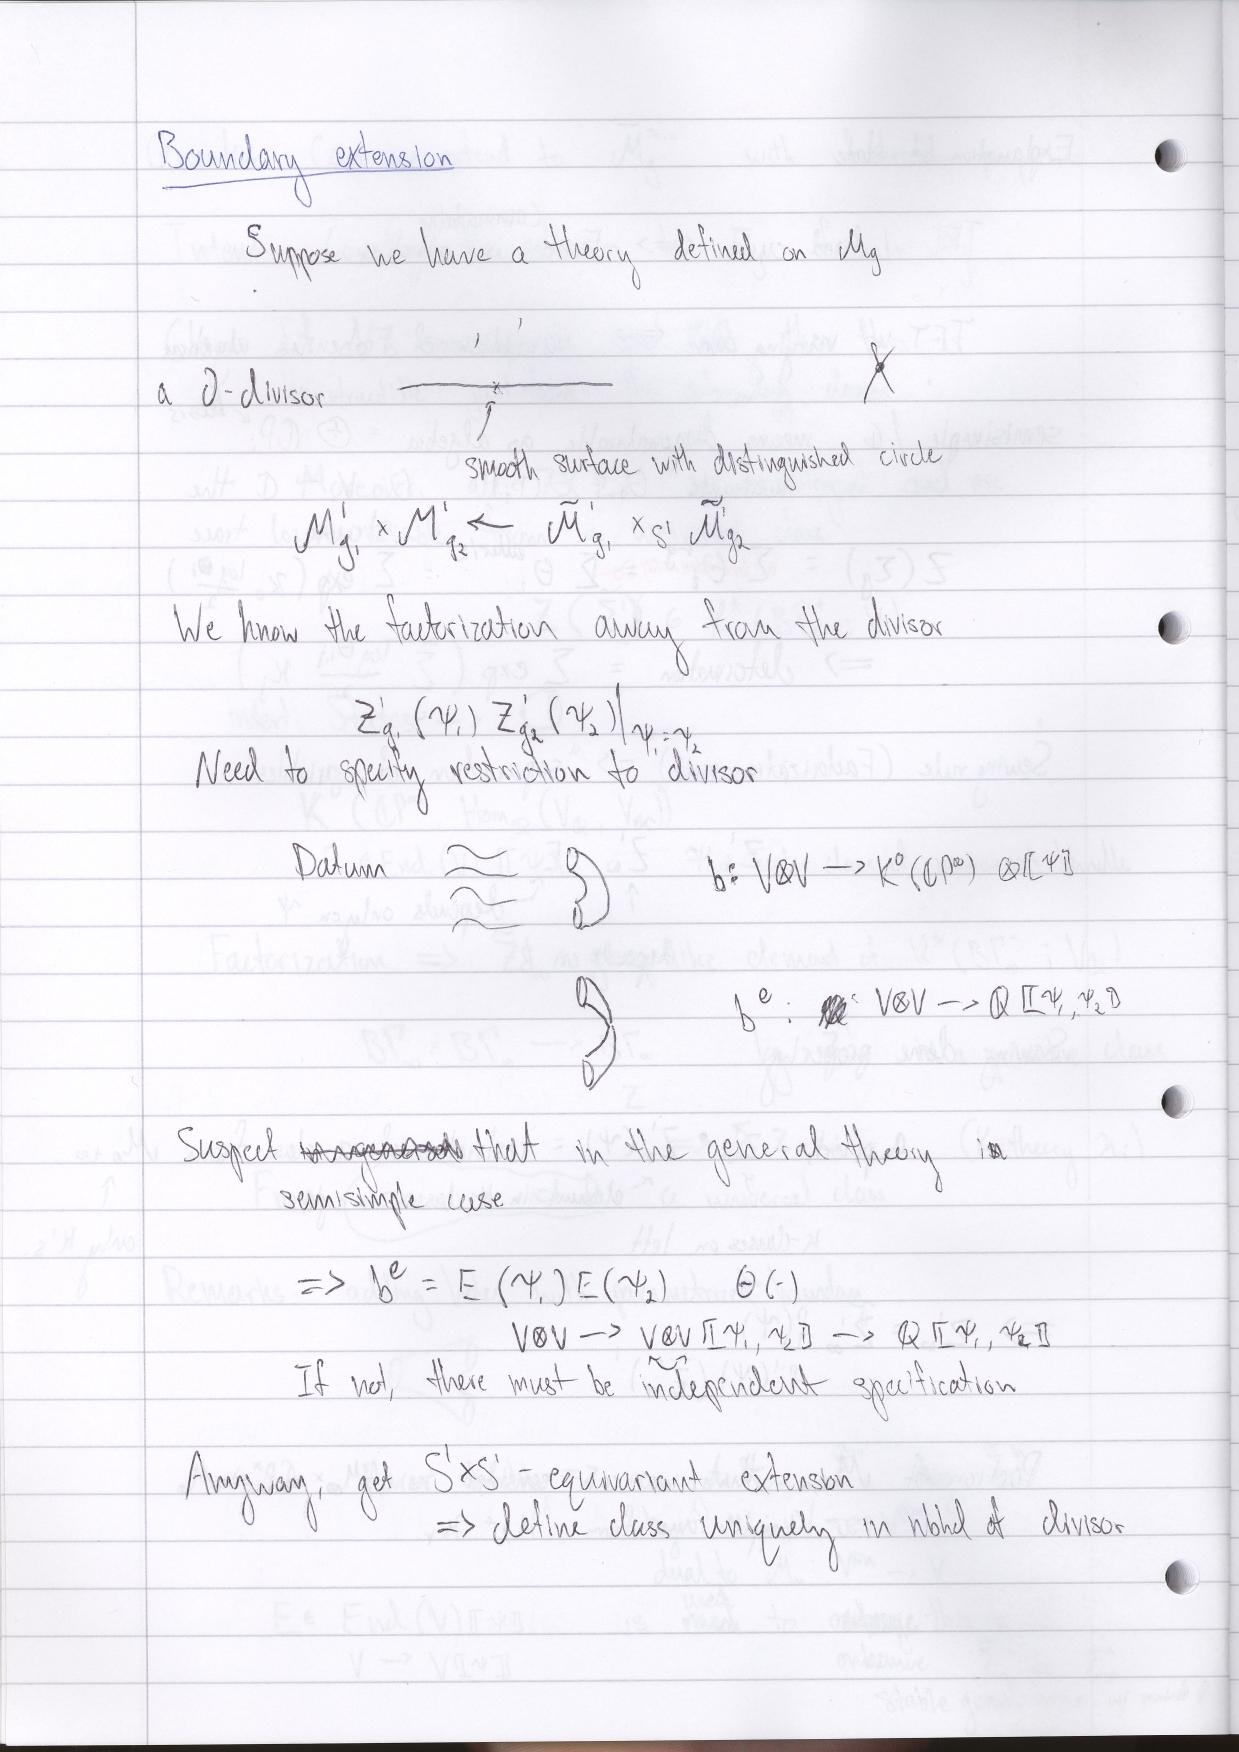 Boundary extension
Suppose we have a theory defined on M_g
a ∂-divisor
smooth surface with distinguished circle
M^1_{g_1} × M^1_{g_2} ← M̃^1_{g_1} ×_{S^1} M̃^1_{g_2}
We know the factorization away from the divisor
Z^1_{g_1}(ψ_1) Z^1_{g_2}(ψ_2)|_{ψ_1=ψ_2}
Need to specify restriction to divisor
Datum b: V⊗V → K^0(CP^∞) Q[[ψ]]
b^e : V⊗V → Q[[ψ_1, ψ_2]]
Suspect that in the general theory in
semisimple case
=> b^e = E(ψ_1)E(ψ_2) Θ(-)
V⊗V → V⊗V[[ψ_1, ψ_2]] → Q[[ψ_1, ψ_2]]
If not, there must be independent specification
Anyway, get S^1×S^1-equivariant extension
=> define class uniquely in nbhd of divisor